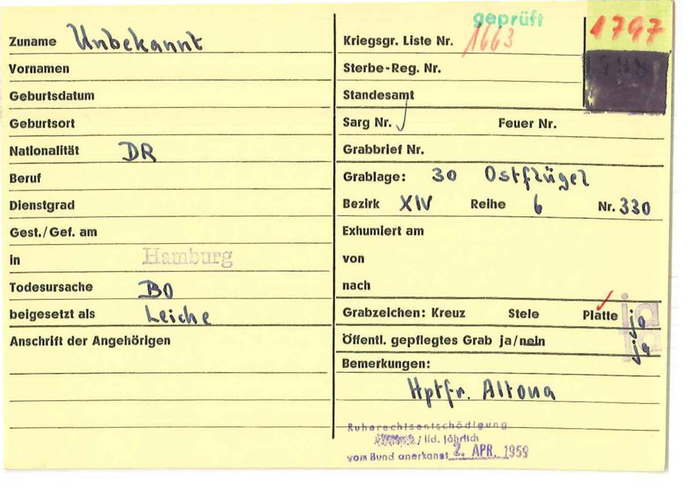 geprüft
1797
Zuname Unbekannt
Vornamen
Geburtsdatum
Geburtsort
Nationalität DR
Beruf
Dienstgrad
Gest./Gef. am
in Hamburg
Todesursache BO
beigesetzt als Leiche
Anschrift der Angehörigen
Kriegsgr. Liste Nr. 1663
Sterbe-Reg. Nr.
Standesamt
Sarg Nr. Feuer Nr.
Grabbrief Nr.
Grablage: 30 Ostflügel
Bezirk XIV Reihe 6 Nr. 330
Exhumiert am
von
nach
Grabzeichen: Kreuz Stele Platte ja
Öffentl. gepflegtes Grab ja/nein ja
Bemerkungen:
Hptfr. Altona
Ruherechtsentschädigung
/ lfd. jährlich
vom Bund anerkannt 2. APR. 1959